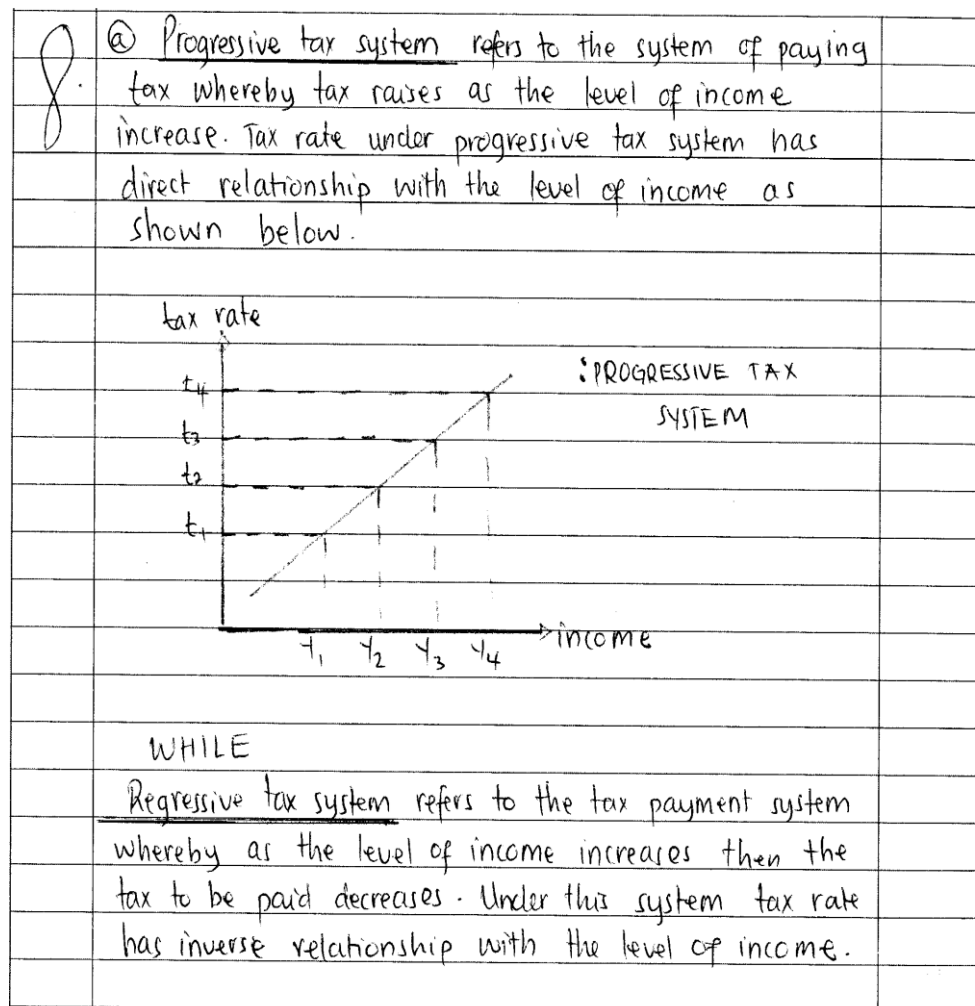 8.
ⓐ Progressive tax system refers to the system of paying
tax whereby tax raises as the level of income
increase. Tax rate under progressive tax system has
direct relationship with the level of income as
shown below.
tax rate
t4
: PROGRESSIVE TAX
SYSTEM
t3
t2
t1
income
Y1 Y2 Y3 Y4
WHILE
Regressive tax system refers to the tax payment system
whereby as the level of income increases then the
tax to be paid decreases. Under this system tax rate
has inverse relationship with the level of income.